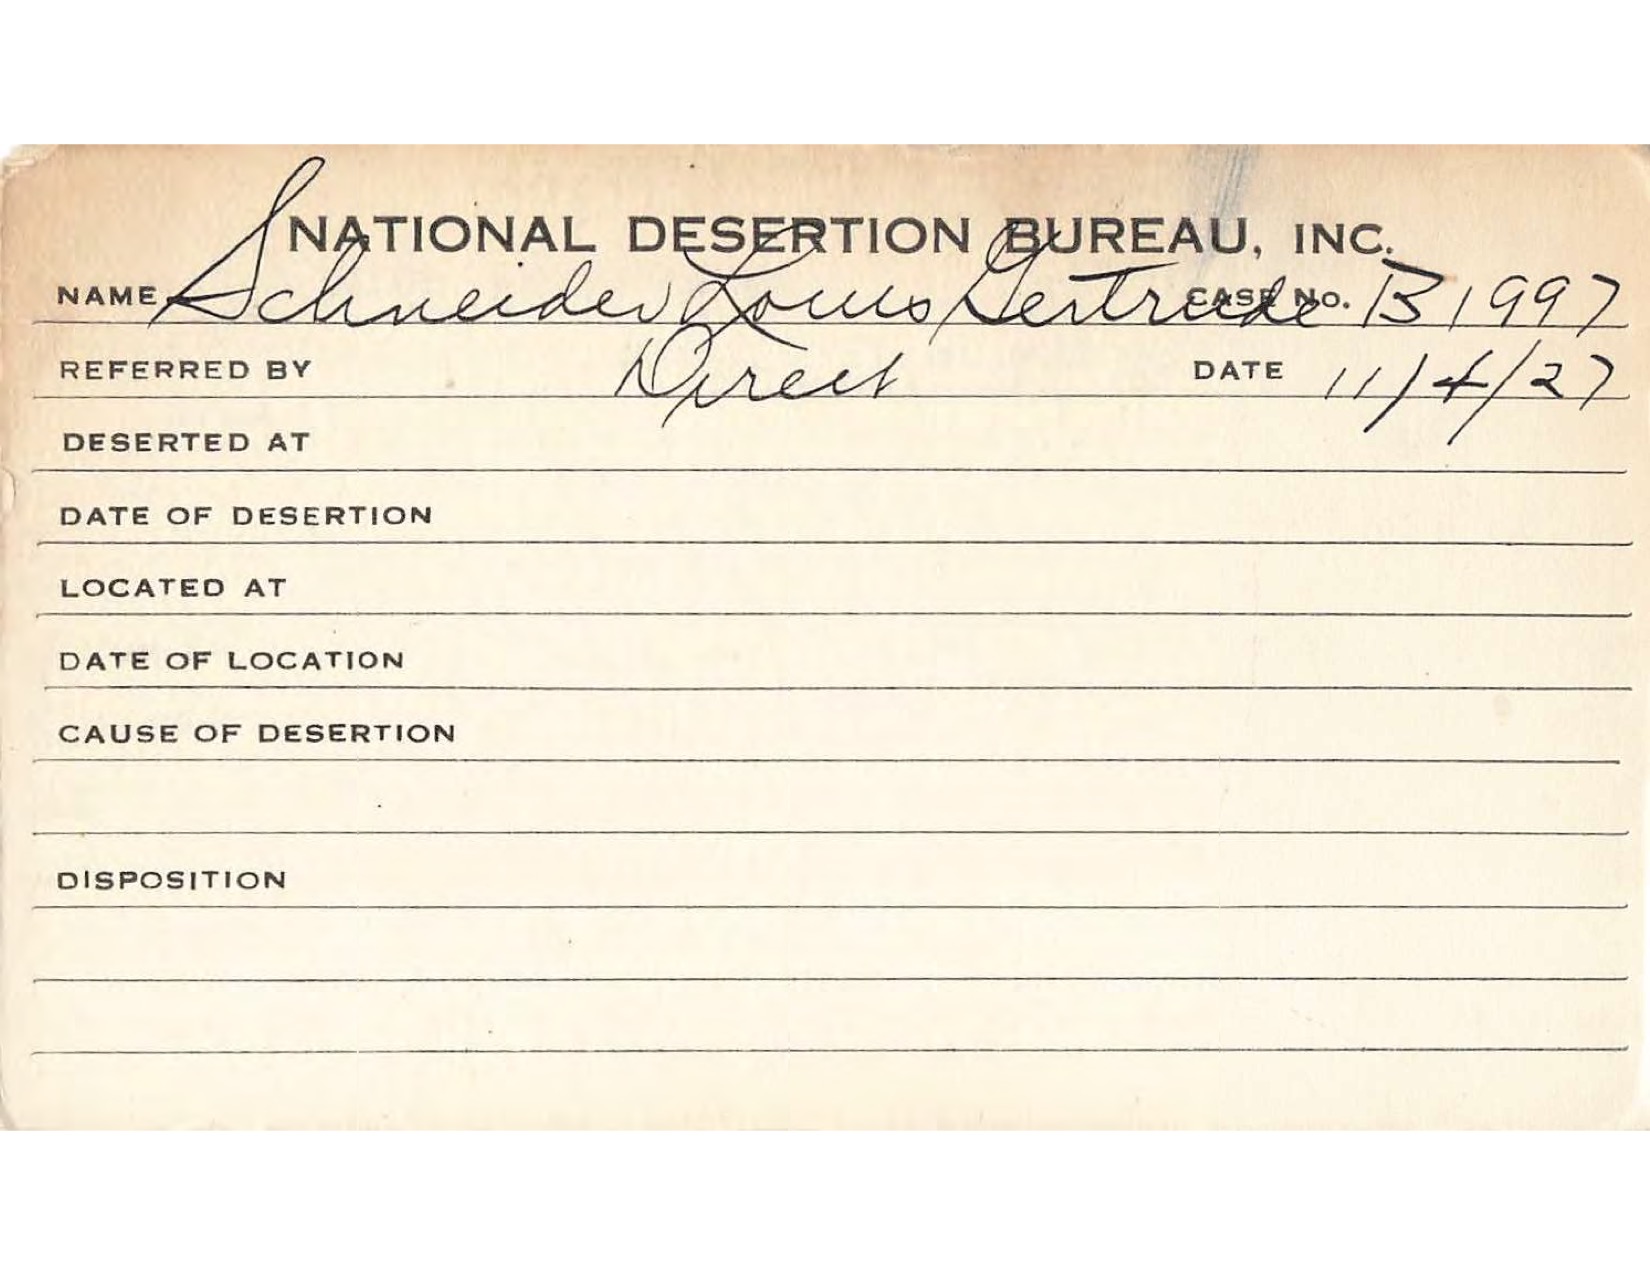 NATIONAL DESERTION BUREAU, INC.
NAME Schneider Louis Gertrude CASE No. B1997
REFERRED BY Direct DATE 11/4/27
DESERTED AT
DATE OF DESERTION
LOCATED AT
DATE OF LOCATION
CAUSE OF DESERTION
DISPOSITION